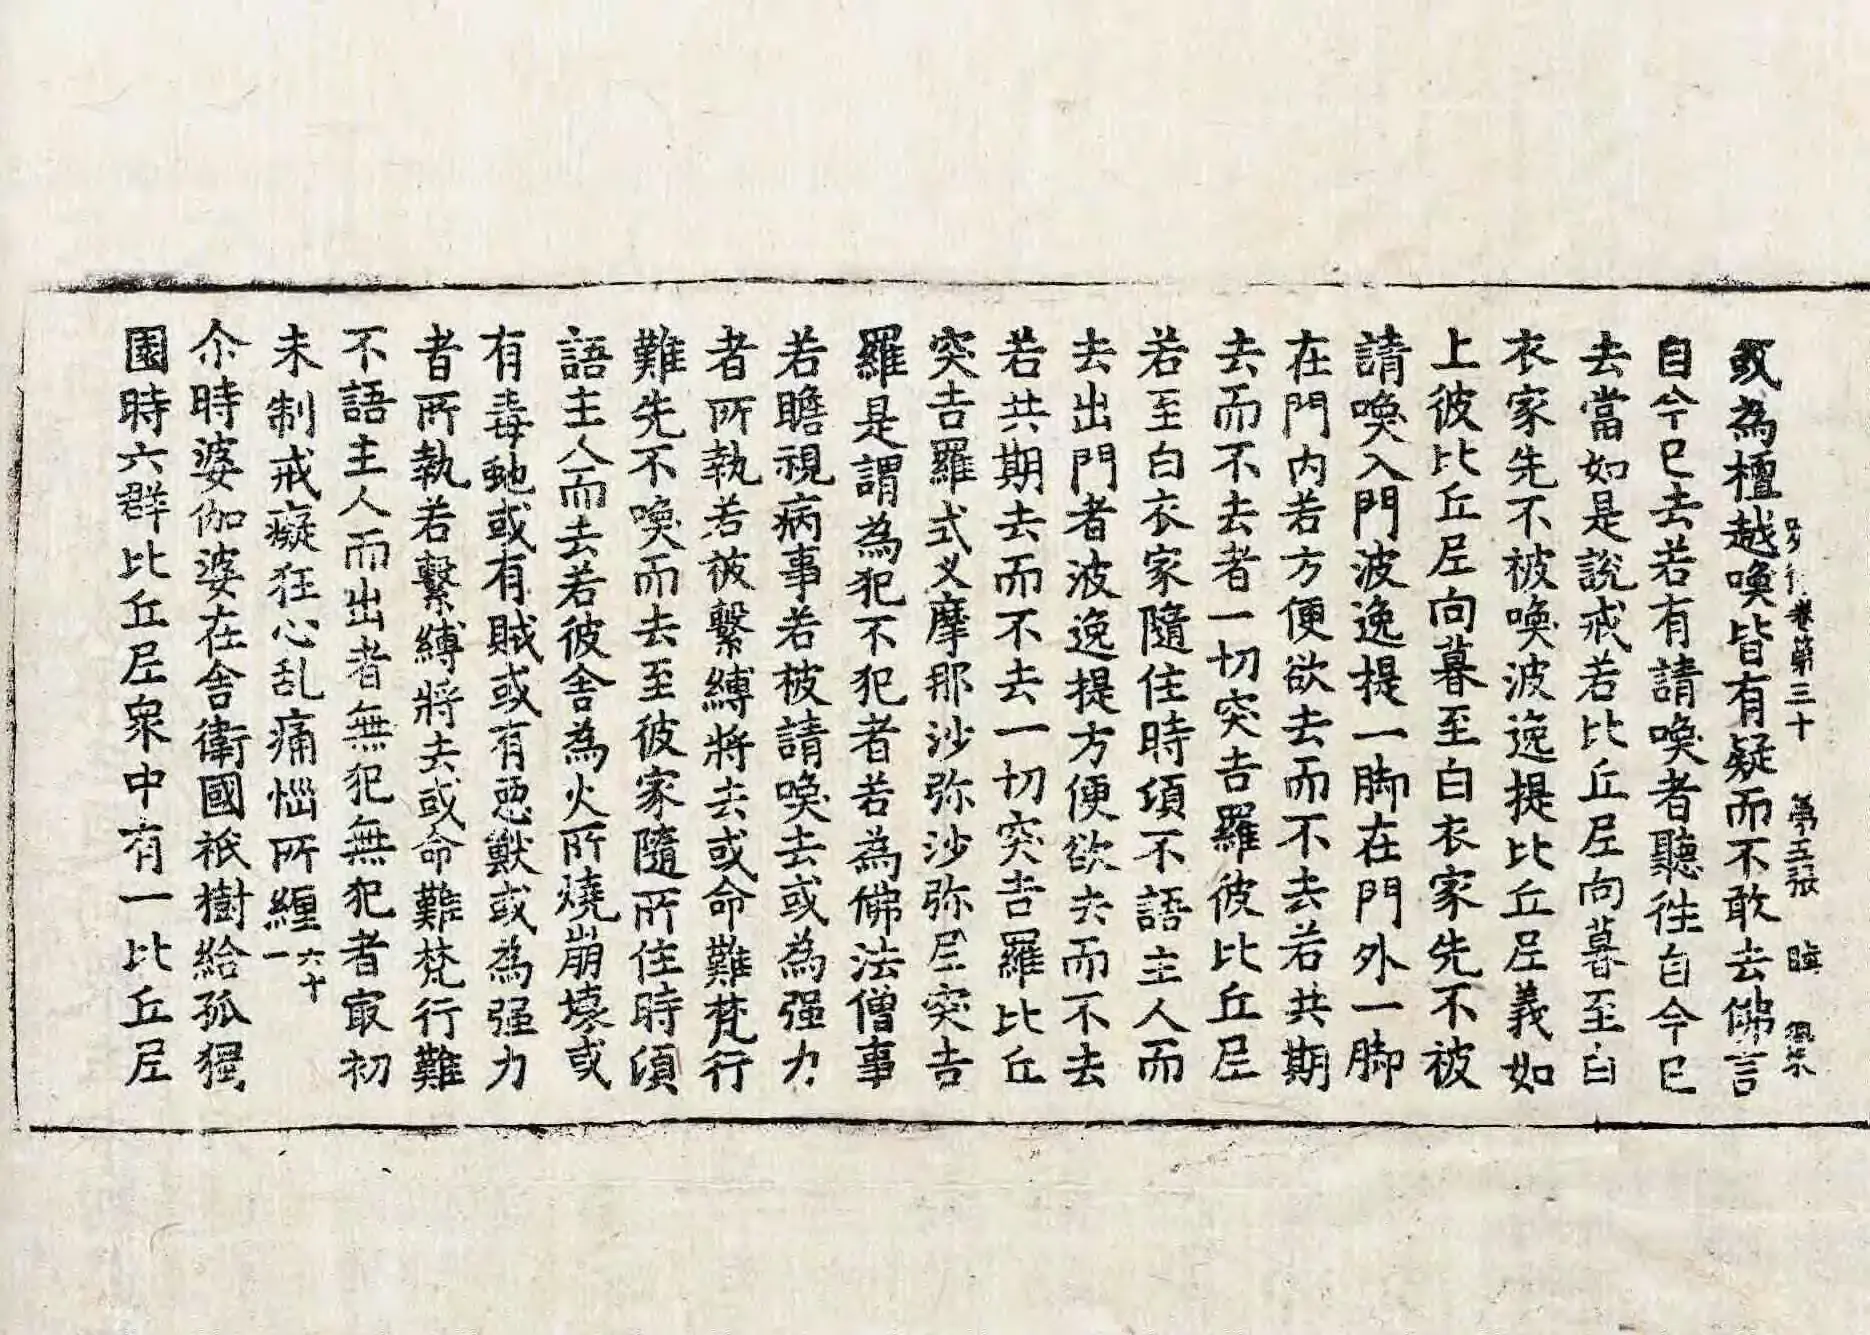 四分律卷第三十 第五張 睦
或為檀越喚皆有疑而不敢去佛言
自今已去若有請喚者聽徃自今已
去當如是說戒若比丘尼向暮至白
衣家先不被喚波逸提比丘尼義如
上彼比丘尼向暮至白衣家先不被
請喚入門波逸提一脚在門外一脚
在門内若方便欲去而不去若共期
去而不去者一切突吉羅彼比丘尼
若至白衣家隨住時湏不語主人而
去出門者波逸提方便欲去而不去
若共期去而不去一切突吉羅比丘
突吉羅式叉摩那沙弥沙弥尼突吉
羅是謂為犯不犯者若為佛法僧事
若瞻視病事若被請喚去或為强力
者所執若被繫縛將去或命難梵行
難先不喚而去至彼家隨所住時湏
語主人而去若彼舍為火所燒崩壞或
有毒虵或有賊或有惡獸或為强力
者所執若繫縛將去或命難梵行難
不語主人而出者無犯無犯者冣初
未制戒癡狂心乱痛惱所纏 六十一
尒時婆伽婆在舍衛國祇樹給孤獨
園時六群比丘尼衆中有一比丘尼